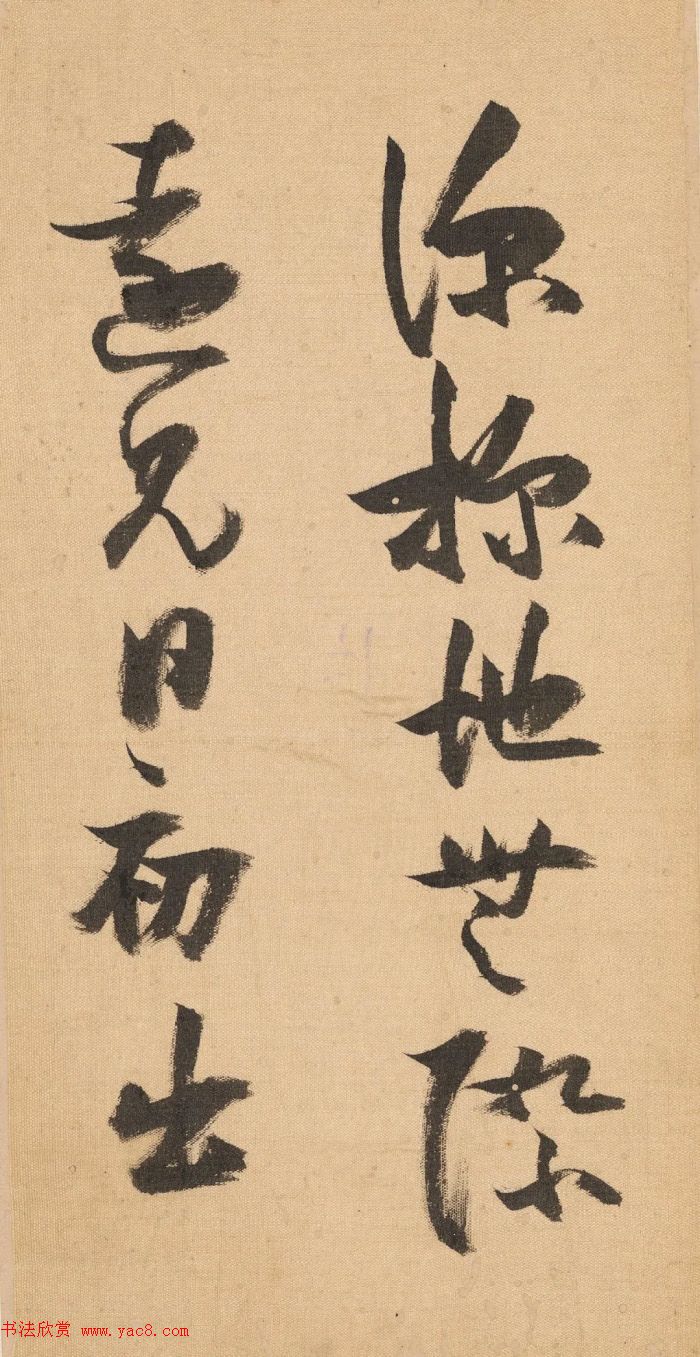 深地無際
遠見日初出
书法欣赏 www.yac8.com